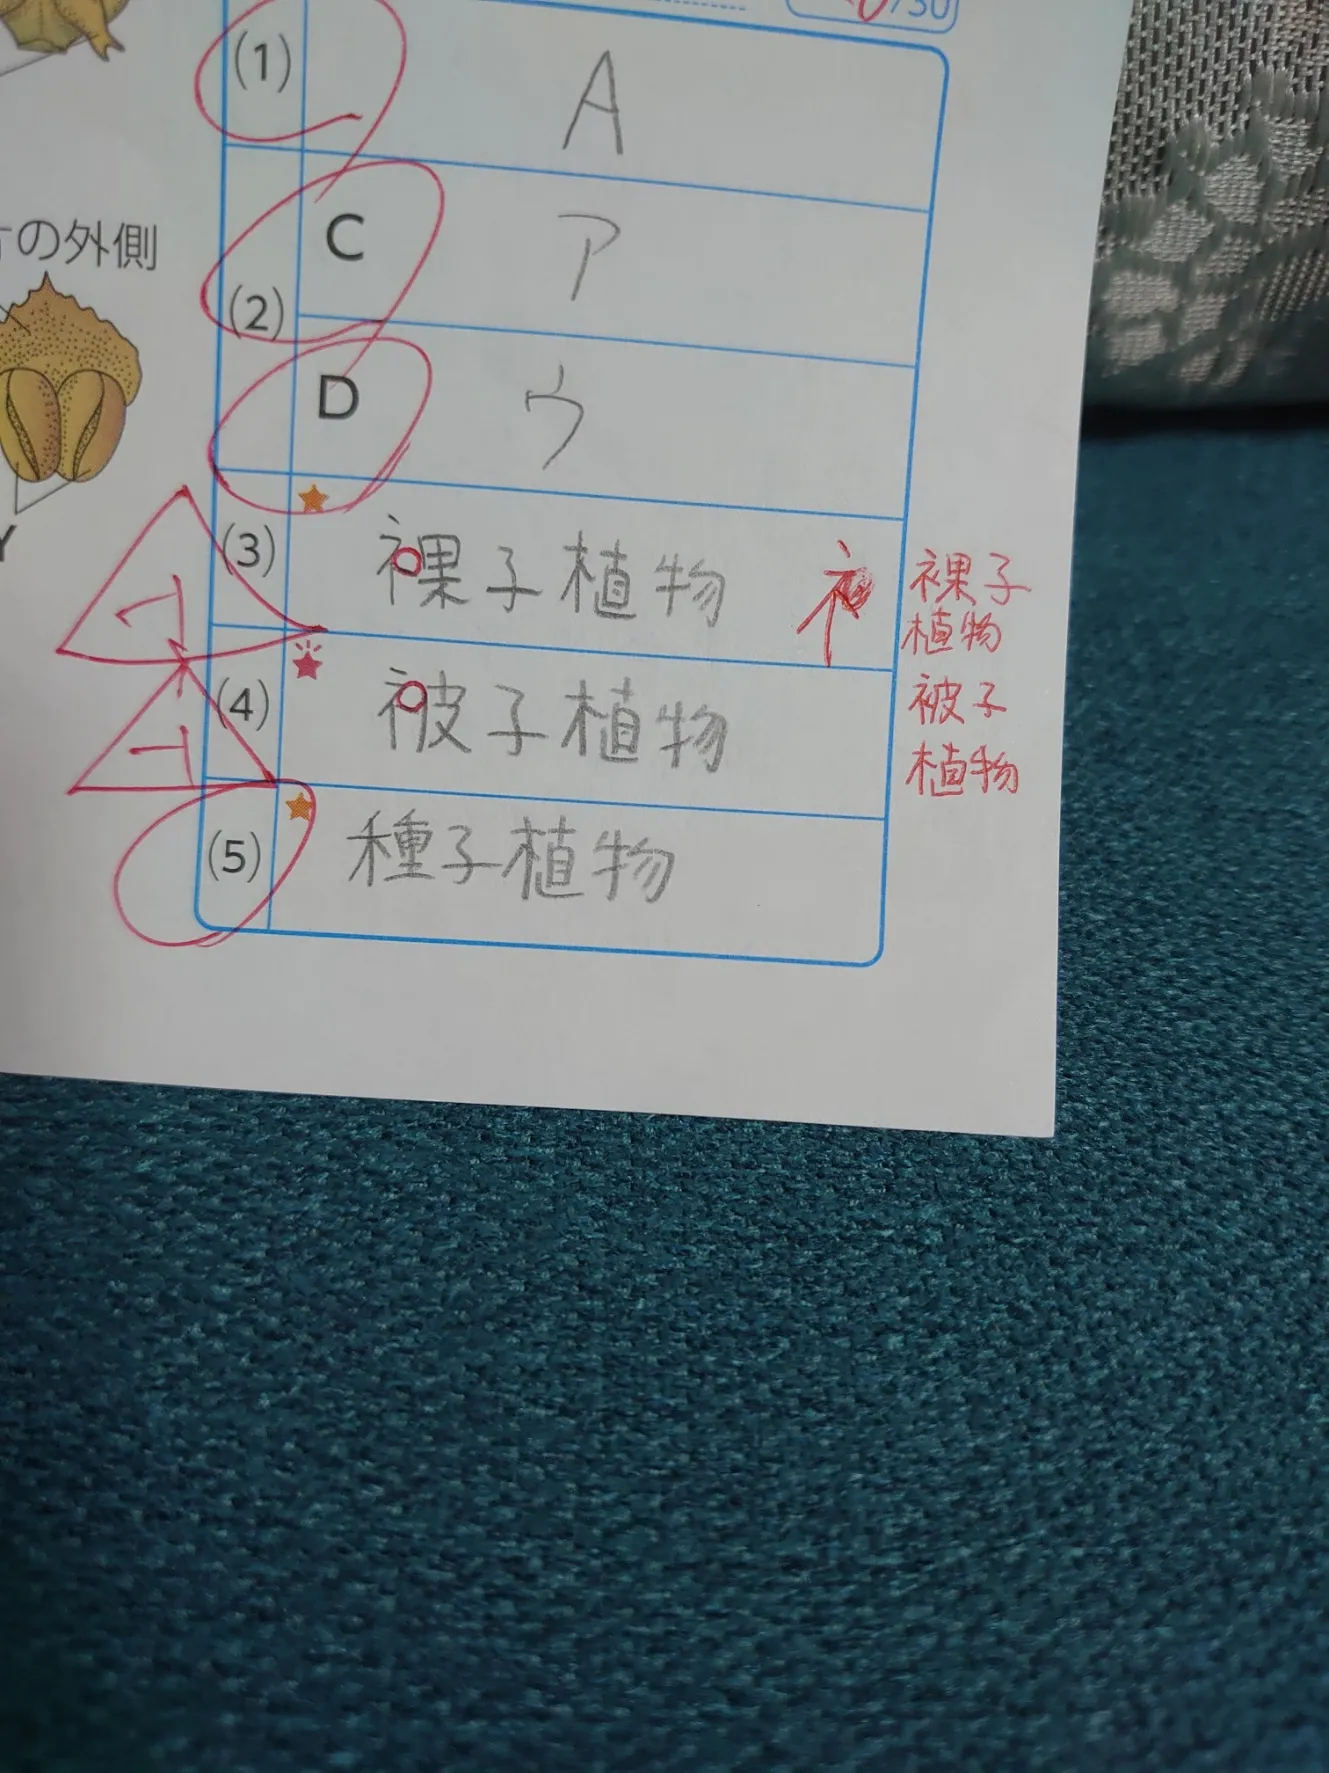 /50
(1) A
(2) C ア
D ウ
の外側
(3) 裸子植物 ネ 裸子
植物
(4) 被子植物 被子
植物
(5) 種子植物
Y